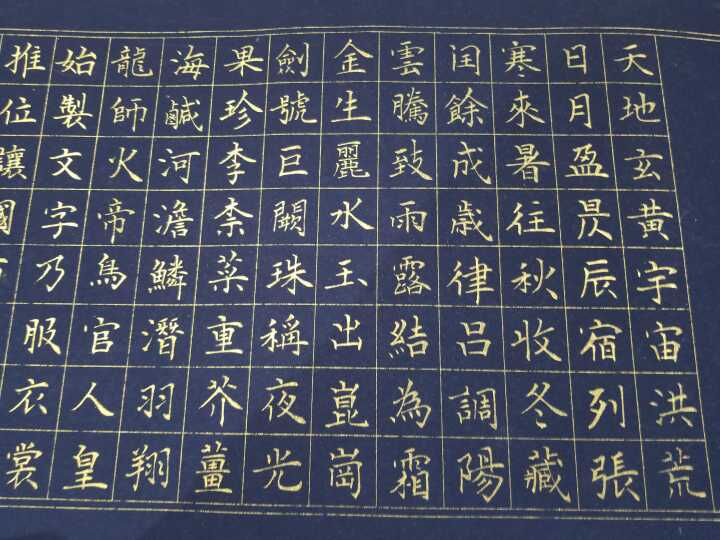 天地玄黃宇宙洪荒
日月盈昃辰宿列張
寒來暑往秋收冬藏
闰餘成歳律呂調陽
雲騰致雨露結為霜
金生麗水玉出崑崗
劍號巨闕珠稱夜光
果珍李柰菜重芥薑
海鹹河澹鱗潛羽翔
龍師火帝鳥官人皇
始製文字乃服衣裳
推位讓國